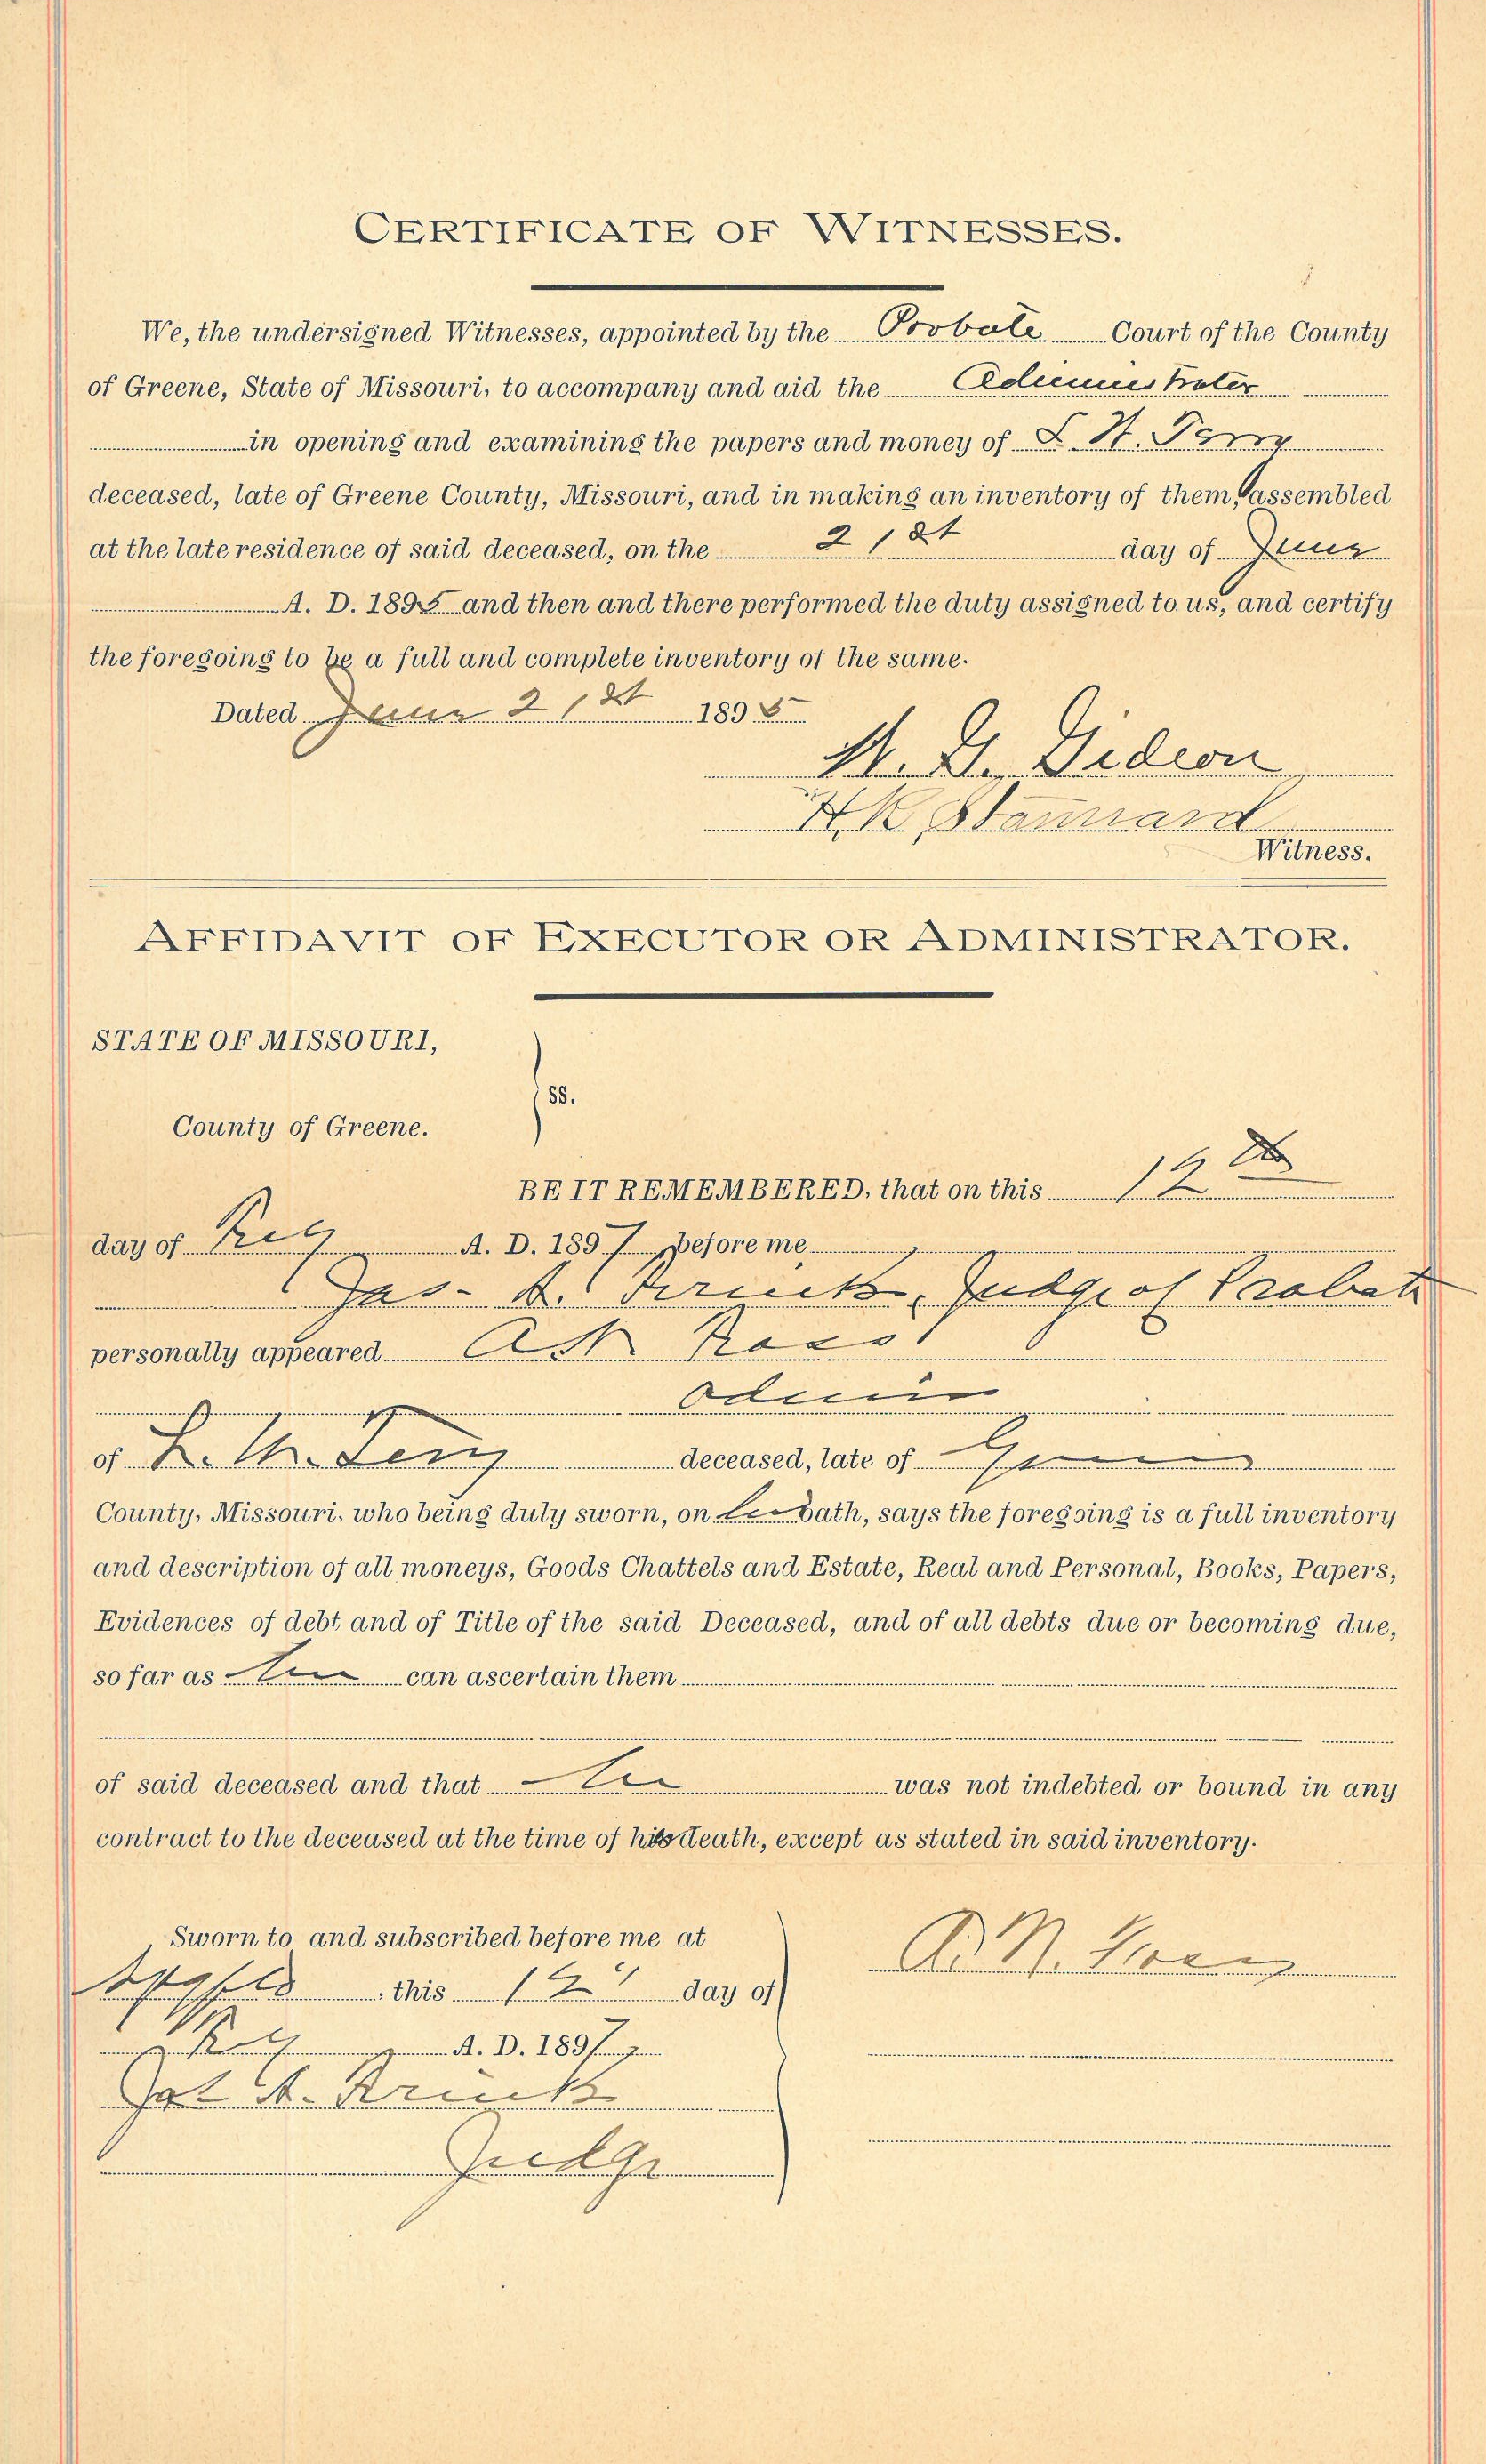 CERTIFICATE OF WITNESSES.
We, the undersigned Witnesses, appointed by the Probate Court of the County
of Greene, State of Missouri, to accompany and aid the Administrator
in opening and examining the papers and money of L. H.
deceased, late of Greene County, Missouri, and in making an inventory of them, assembled
at the late residence of said deceased, on the 21st day of June
A. D. 1895 and then and there performed the duty assigned to us, and certify
the foregoing to be a full and complete inventory of the same.
Dated June 21st 1895
Gideon
H K Stannard
Witness.
AFFIDAVIT OF EXECUTOR OR ADMINISTRATOR.
STATE OF MISSOURI,
ss.
County of Greene.
BE IT REMEMBERED, that on this 12
day of A. D. 1897 before me
Jas. Judge of Probate
personally appeared
Admin
of L. deceased, late of Greene
County, Missouri, who being duly sworn, on his oath, says the foregoing is a full inventory
and description of all moneys, Goods Chattels and Estate, Real and Personal, Books, Papers,
Evidences of debt and of Title of the said Deceased, and of all debts due or becoming due,
so far as he can ascertain them
of said deceased and that he was not indebted or bound in any
contract to the deceased at the time of his death, except as stated in said inventory.
Sworn to and subscribed before me at
this 12 day of
A. D. 1897
Judge